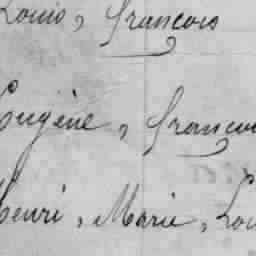 Louis, François
Eugène, François
Henri, Marie, Lou